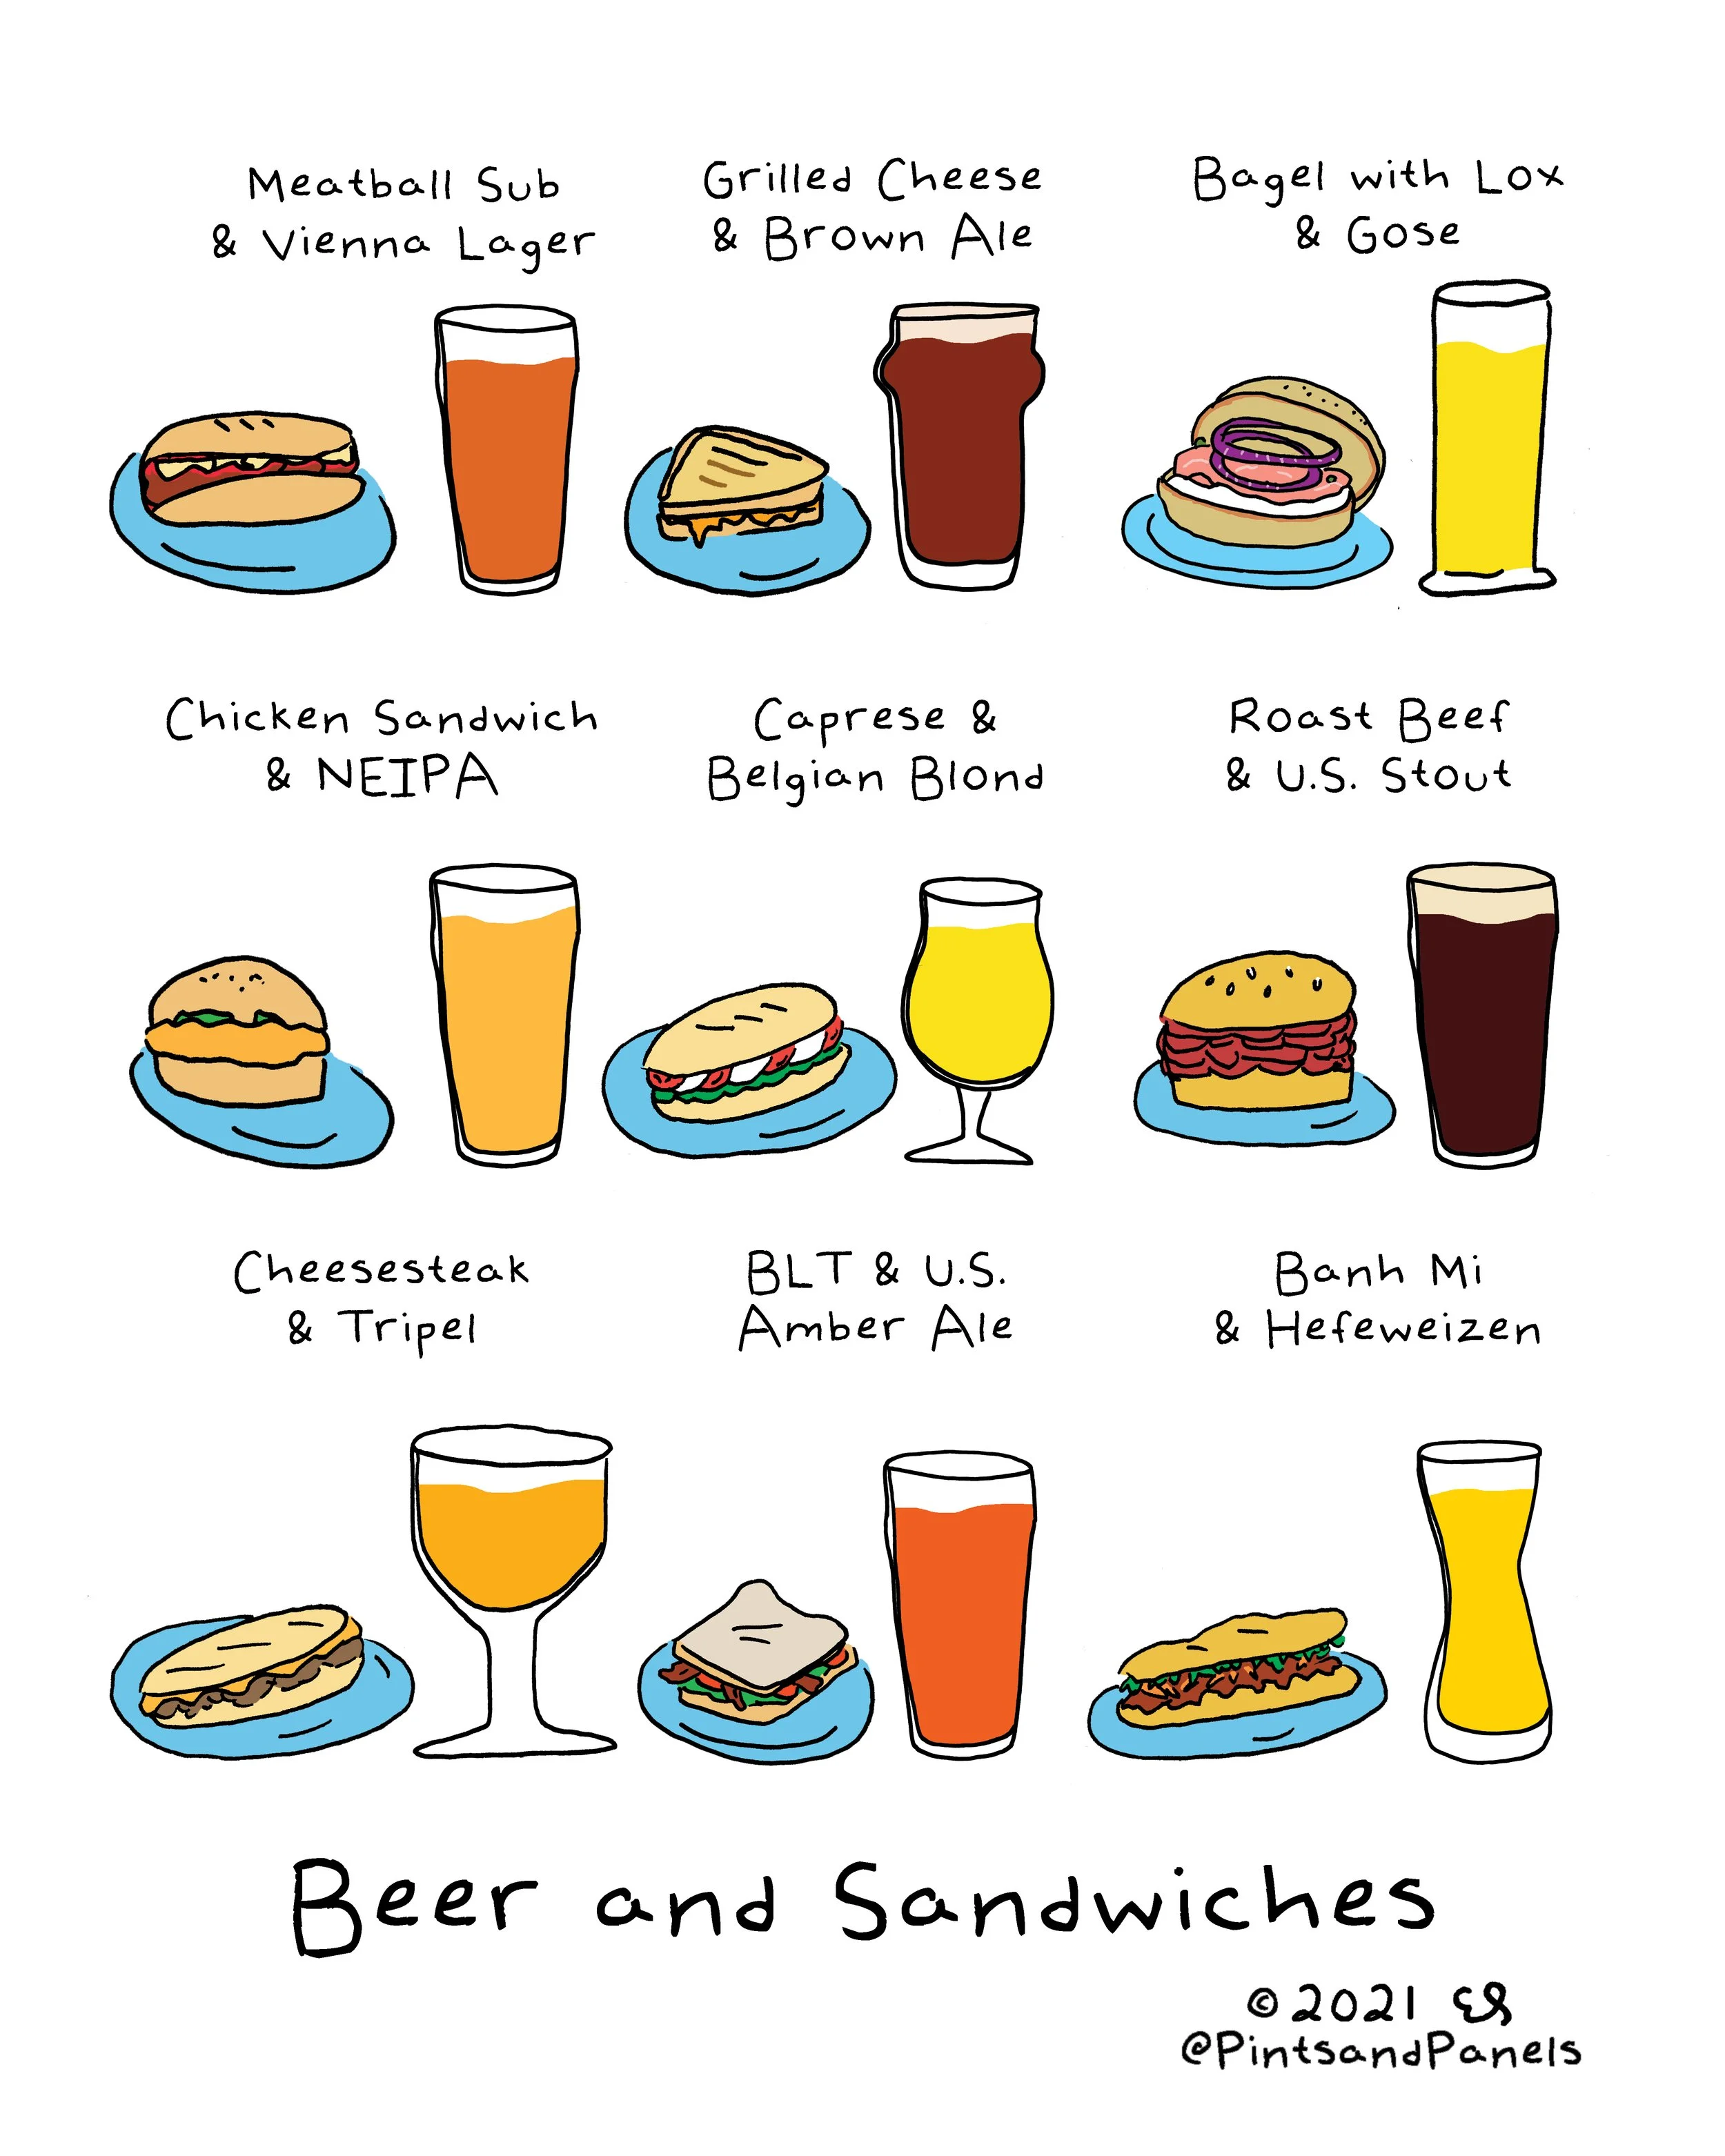 Meatball Sub
& Vienna Lager
Grilled Cheese
& Brown Ale
Bagel with Lox
& Gose
Chicken Sandwich
& NEIPA
Caprese &
Belgian Blond
Roast Beef
& U.S. Stout
Cheesesteak
& Tripel
BLT & U.S.
Amber Ale
Banh Mi
& Hefeweizen
Beer and Sandwiches
©2021
@PintsandPanels